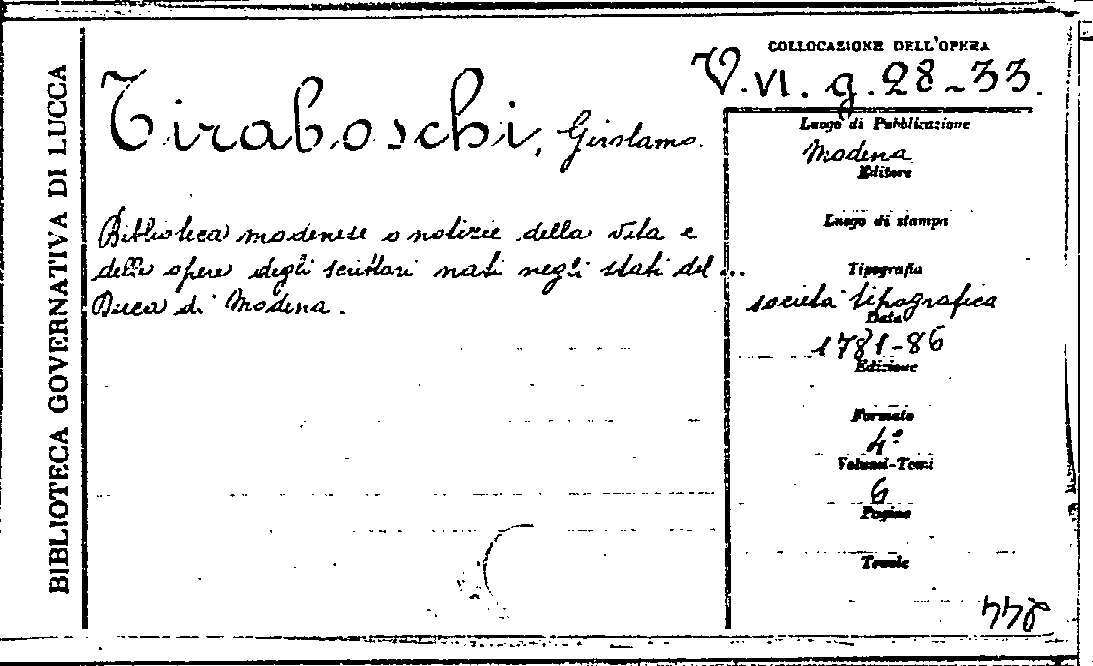 BIBLIOTECA GOVERNATIVA DI LUCCA
Tiraboschi, Girolamo.
Biblioteca modenese o notizie della vita e
delle opere degli scrittori nati negli stati del ...
Duca di Modena.
COLLOCAZIONE DELL'OPERA
V. VI. g. 28-33.
Luogo di Pubblicazione
Modena
Editore
Luogo di stampa
Tipografia
società tipografica
Data
1781-86
Edizione
Formato
4º
Volumi-Tomi
6
Pagine
Tavole